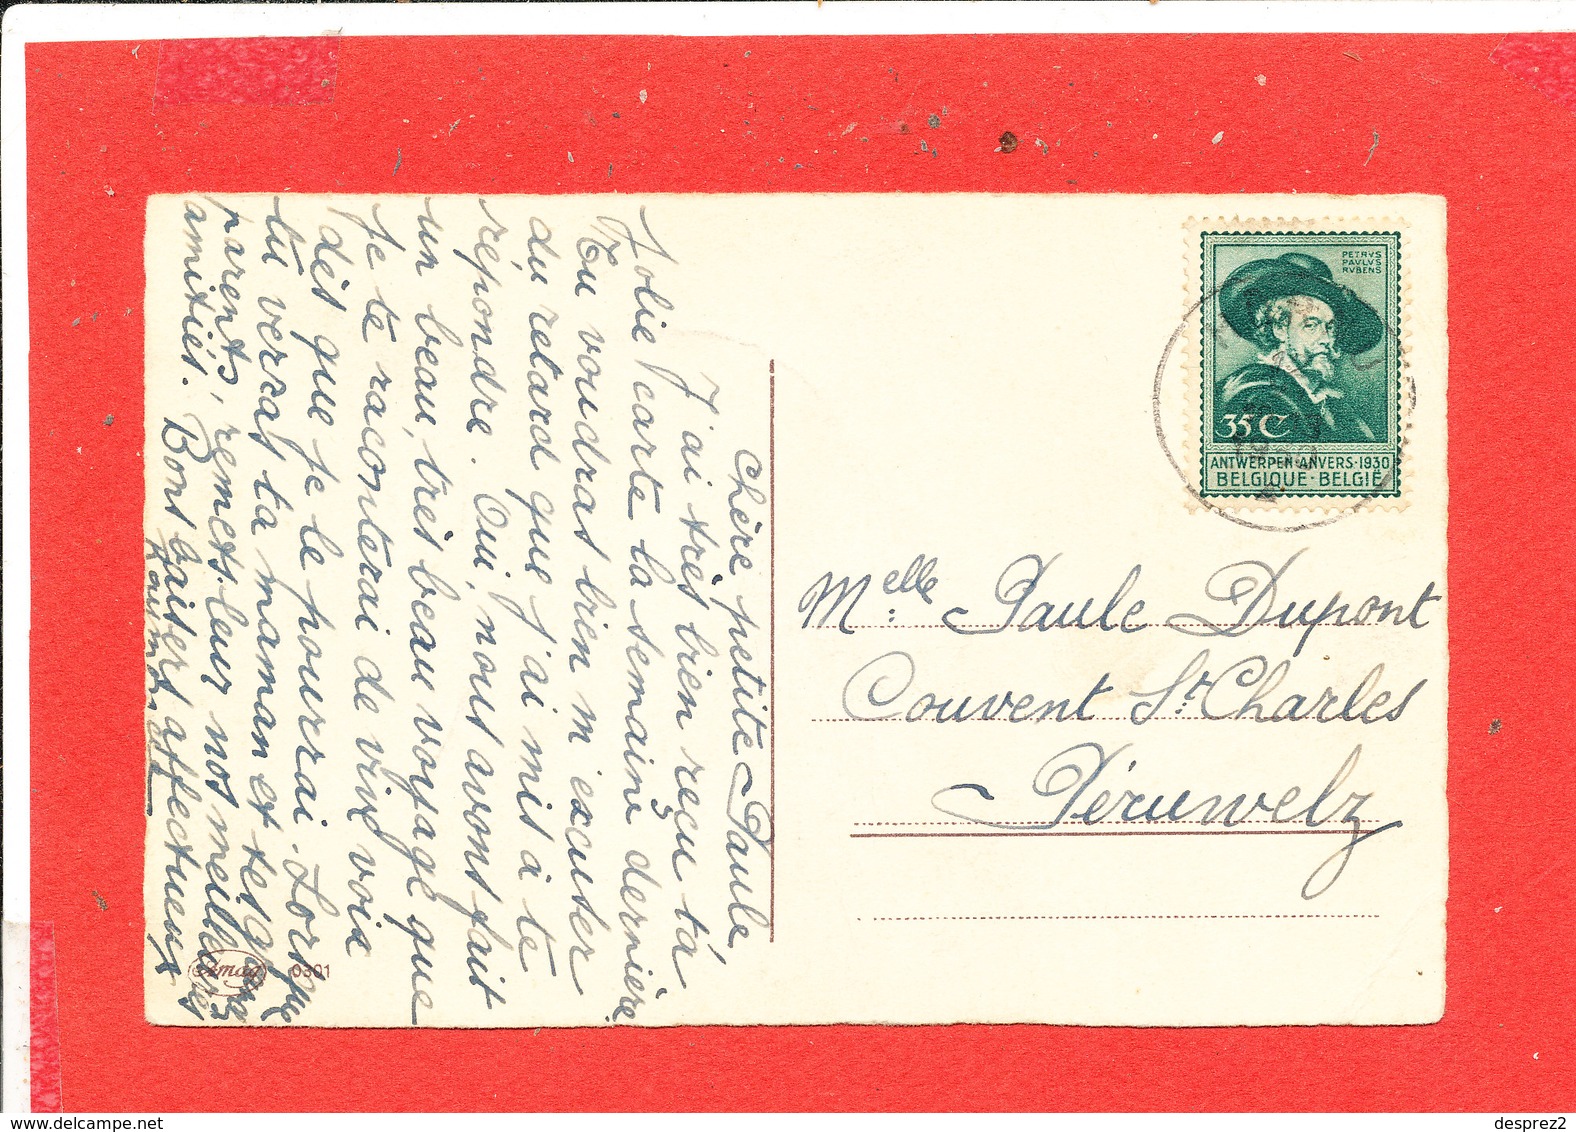 chère petite Paule,
J'ai très bien reçu ta
Jolie carte la semaine dernière
Tu voudras bien m'excuser
du retard que j'ai mis à te
répondre. Oui, nous avons fait
un beau, très beau voyage que
je te raconterai de vive voix
dès que je le pourrai. Lorsque
tu verras ta maman et tes grands
parents, remets-leur nos meilleures
amitiés. Bons baisers affectueux
Raimonde
Amag 0301
PETRVS
PAVLVS
RVBENS
35 C
ANTWERPEN·ANVERS·1930
BELGIQUE·BELGIË
Melle Paule Dupont
Couvent St. Charles
Péruwelz
www.delcampe.net
desprez2